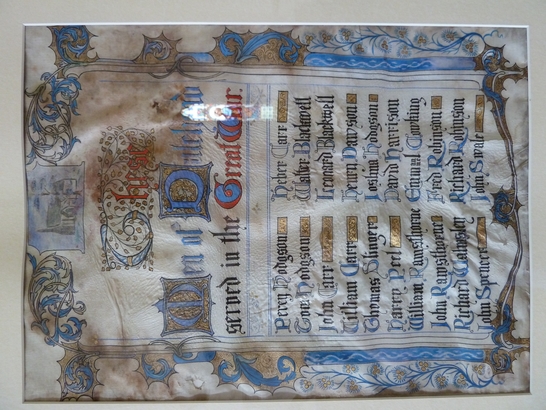 These
Men of
served in the Great War
Percy Hodgson
Tom Hodgson
John Carr
William Carr
Thomas
Harry Peel
William Rawsthorne
John Rawsthorne
Richard Walmsley
John Spencer
Carr
Walter Blackwell
Leonard Blackwell
Henry Davison
Joshua Hodgson
David Harrison
Thomas Cowking
Fred Robinson
Richard Robinson
John